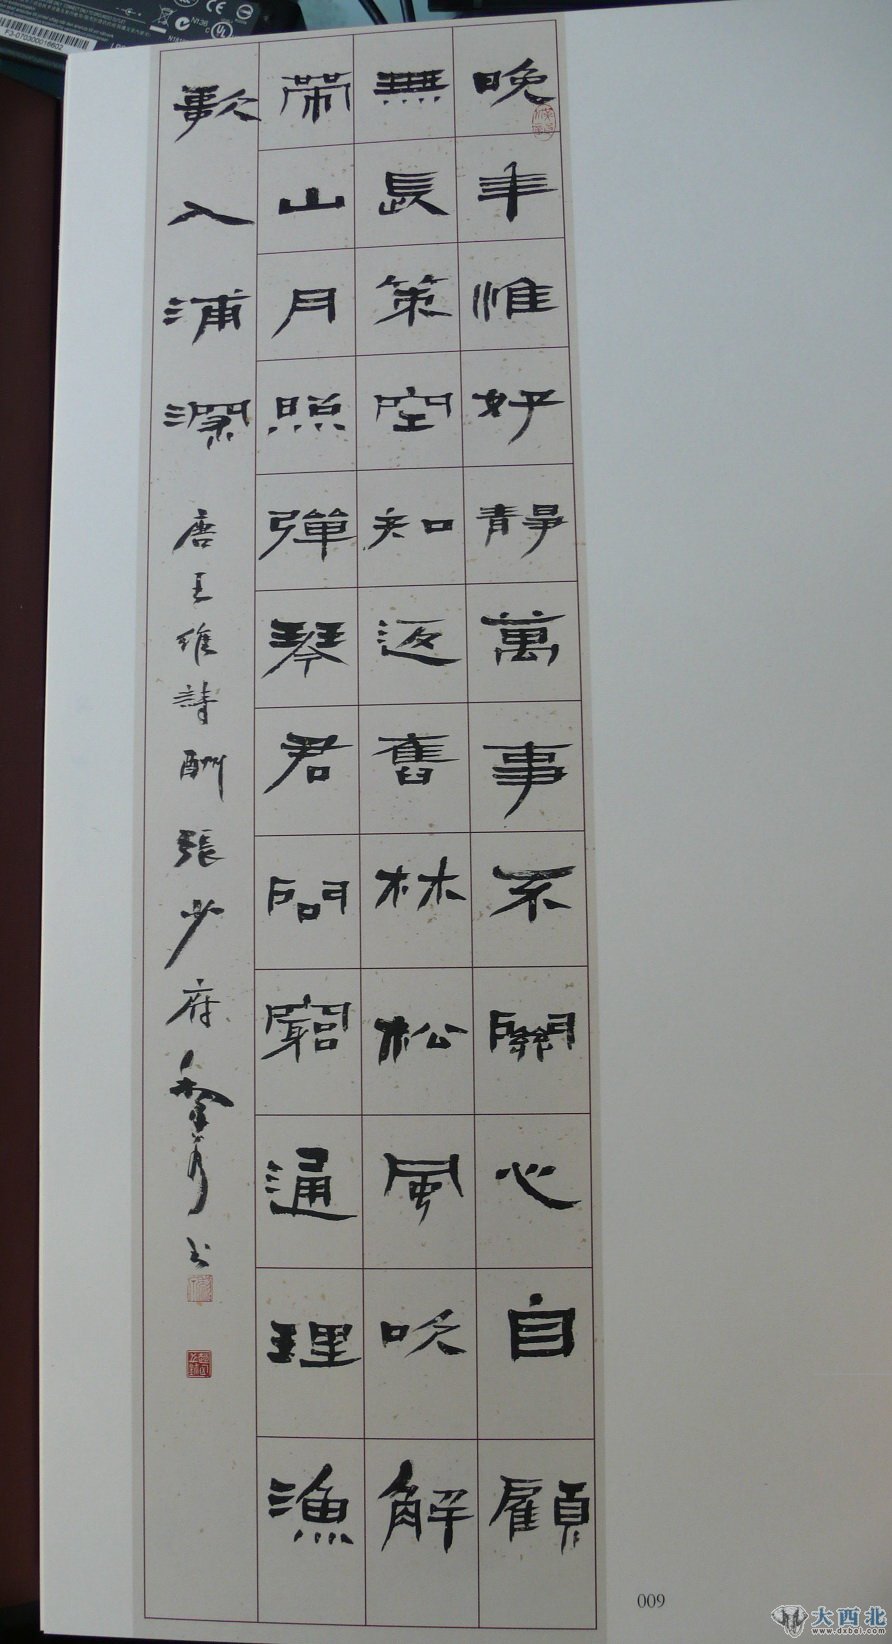 晚年惟好靜萬事不關心自顧
無長策空知返舊林松風吹解
帶山月照彈琴君問窮通理漁
歌入浦深
唐王維詩酬張少府
书
009
大西北
www.dxbei.com
F3-070300016602
N136